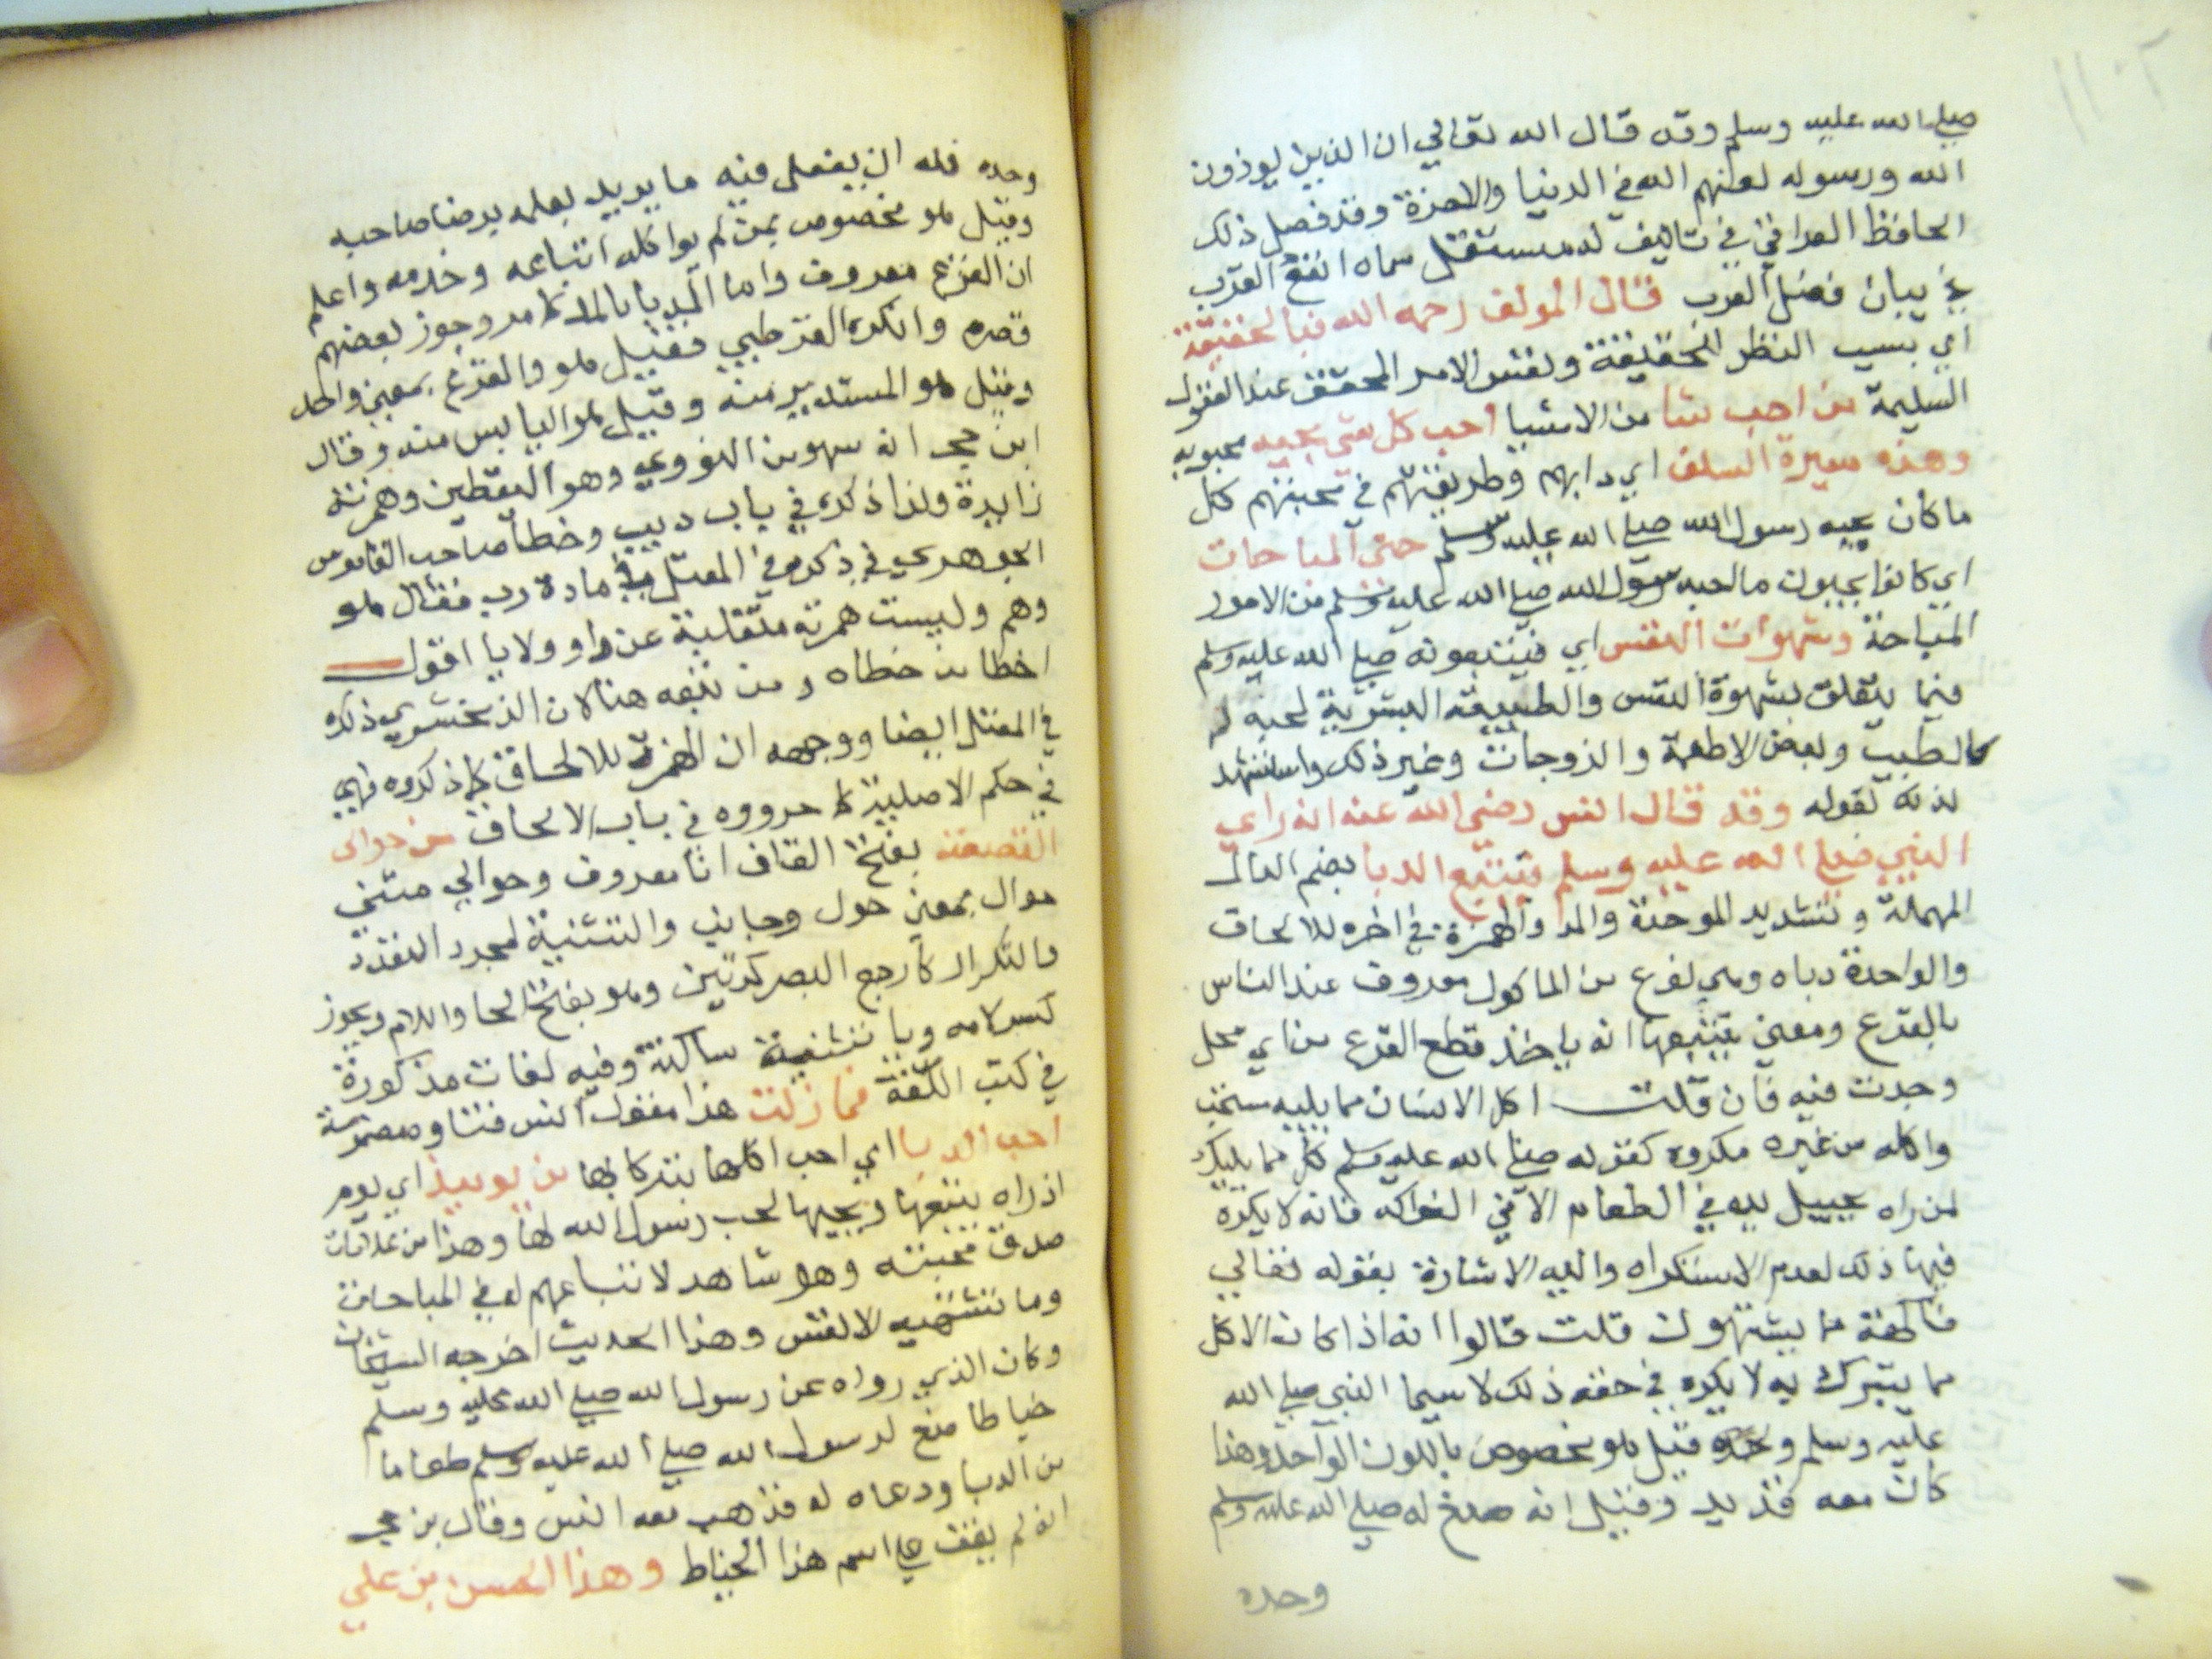 صلى الله عليه وسلم وقد قال الله تعالي ان الذين يوذون
الله ورسوله لعنهم الله في الدنيا والاخرة وقد فصل ذلك
الحافظ العراقي في تاليف له مستقل سماه القرب
في بيان فضل العرب قال المولف رحمه الله فبالحقيقة
اي بسبب النظر للحقيقة ونفس الامر المحقق عند العقول
السليمة من احب شيا من الاشيا احب كل شي يحبه محبوبه
وهذه سيرة السلف اي دابهم وطريقتهم في محبتهم كل
ما كان يحبه رسول الله صلى الله عليه وسلم حتى المباحات
اي كانوا يحبون ما احبه رسول الله صلى الله عليه وسلم من الامور
المباحة وشهوات النفس اي فيتبعونه صلى الله عليه وسلم
فيما يتعلق بشهوة النفس والطبيعة البشرية لحبه له
كالطيب وبعض الاطعمة والزوجات وغير ذلك واستشهد
لذلك بقوله وقد قال انس رضي الله عنه انه راي
النبي صلى الله عليه وسلم يتتبع الدبا بضم الدال
المهملة وتشديد الموحدة والمد والهمزة في اخره للالحاق
والواحدة دباه وهي لفرع من الماكول معروف عند الناس
بالقرع ومعنى يتتبعها انه ياخذ قطع القرع من اي محل
وجدت فيه فان قلت اكل الانسان مما يليه مستحب
واكله من غيره مكروه كقوله صلى الله عليه وسلم كل مما يليك
لمن راه يجيل يده في الطعام الا في الفواكه فانه لا يكره
فيها ذلك لعدم الاستكراه واليه الاشارة بقوله تعالي
فاكهة مما يشتهون قلت قالوا انه اذا كان الاكل
مما يتبرك به لا يكره في حقه ذلك لا سيما النبي صلى الله
عليه وسلم وحده قيل هو مخصوص باللون الواحد وهذا
كان معه قديد وقيل انه صنع له صلى الله عليه وسلم
وحده
وحده فله ان يفعل فيه ما يريد لعلمه برضا صاحبه
وقيل هو مخصوص بمن لم يواكله اتباعه وخدمه واعلم
ان القرع معروف واما الدبا بالمد كما مر وجوز بعضهم
قصره وانكره القرطبي فقيل هو والقرع بمعني واحد
وقيل هو المستدير منه وقيل هو اليابس منه وقال
ابن حجر انه سهو من النووي وهو اليقطين وهمزته
زايدة ولذا ذكره في باب دبب وخطا صاحب القاموس
الجوهري في ذكره في المعتل في مادة رب فقال هو
وهم وليست همزته منقلبة عن واو ولا يا اقول
اخطا من خطاه ومن تبعه هنا لان الزمخشري ذكره
في المعتل ايضا ووجهه ان الهمزة للالحاق كما ذكروه فهي
في حكم الاصلية كما حرروه في باب الالحاق من حوالى
القصعة بفتح القاف انا معروف وحوالي مثني
حوال بمعني حول وجانب والتثنية لمجرد التعدد
والتكرار كارجع البصر كرتين وهو بفتح الحا واللام ويجوز
كسر لامه ويا تثنية ساكنة وفيه لغات مذكورة
في كتب اللغة فما زلت هذا مقول انس فتاوه مضمومة
احب الدبا اي احب اكلها بتبركا بها من يوميذ اي يوم
اذ راه يتتبعها ويحبها لحب رسول الله لها وهذا من علامات
صدق محبته وهو شاهد لاتباعهم له في المباحات
وما تشتهيه الانفس وهذا الحديث اخرجه الشيخان
وكان الذي رواه عن رسول الله صلى الله عليه وسلم
خياطا صنع لرسول الله صلى الله عليه وسلم طعاما
من الدبا ودعاه له فذهب معه انس وقال بن حجر
انه لم يقف على اسم هذا الخياط وهذا الحسن بن علي